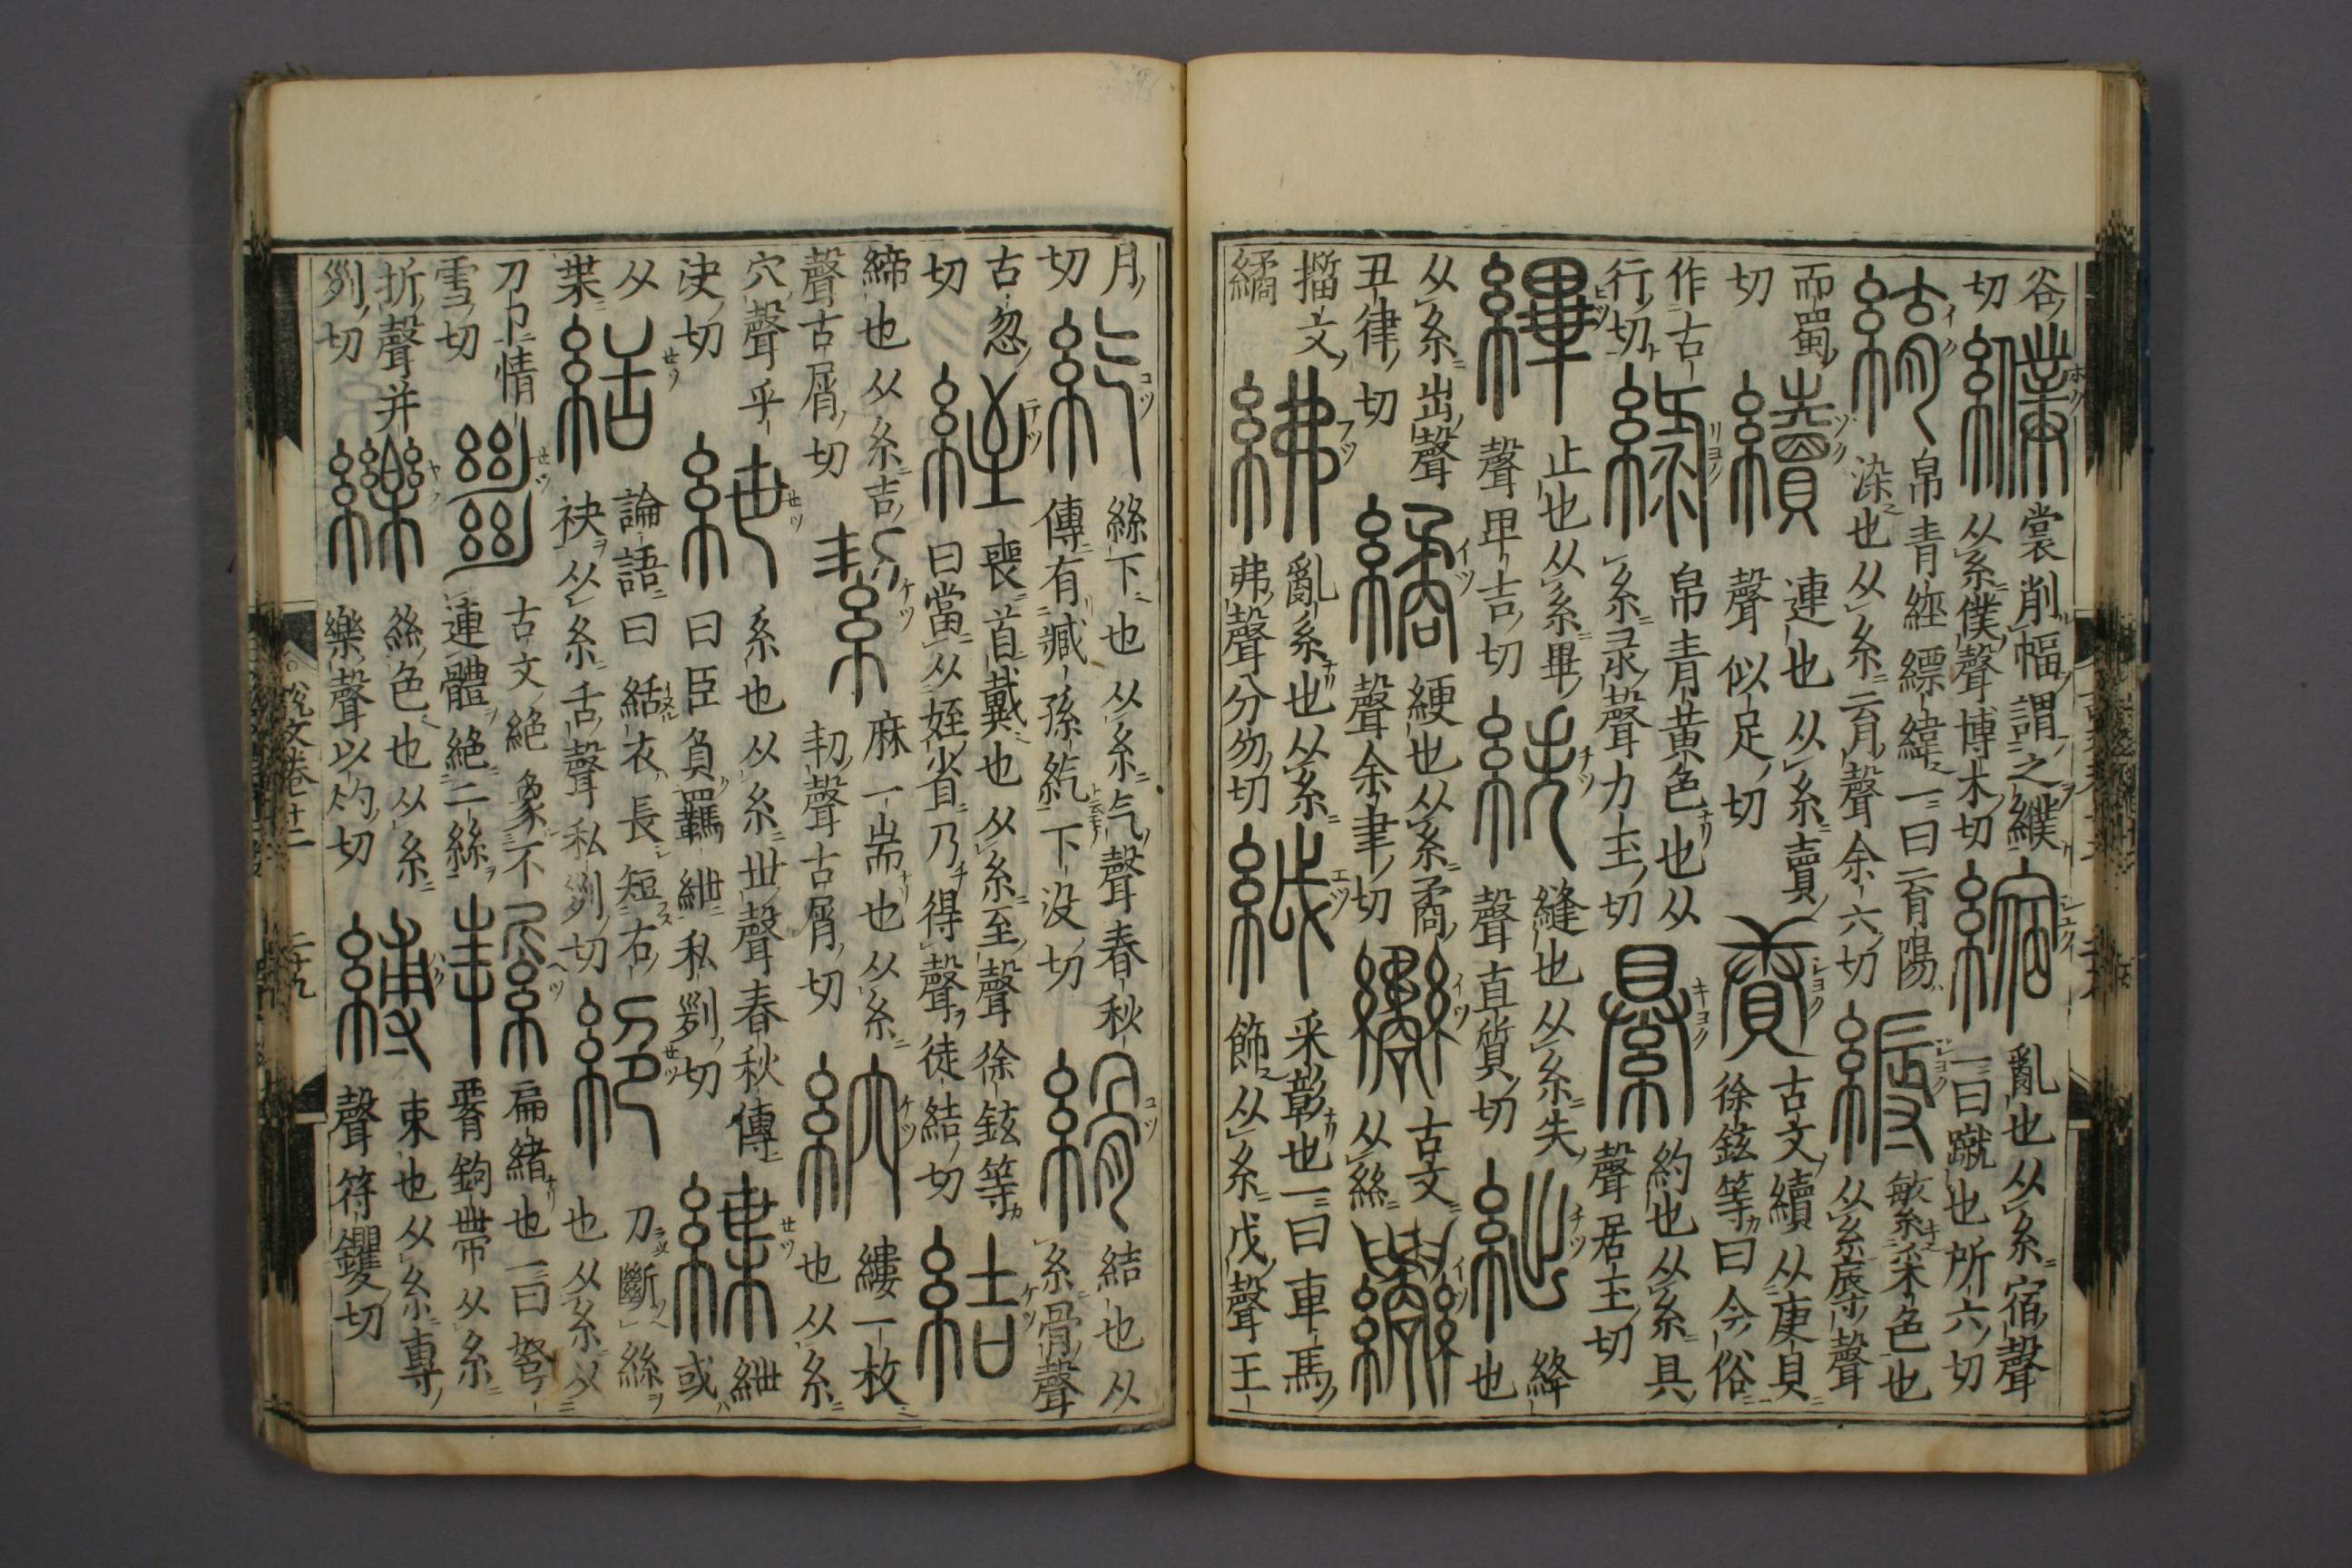 谷
切
纀
裳削幅謂之纀
从糸僕聲博木切
縮
亂也从糸宿聲
一曰蹴也所六切
䋭
帛青經縹緯一曰育陽
染也从糸育聲余六切
縟
緐采色也
从糸辱聲
而蜀
切
續
連也从糸賣
聲似足切
賡
古文續从庚貝
徐鉉等曰今俗
作古
行切
綠
帛青黃色也从
糸彔聲力玉切
約也从糸具
聲居玉切
縪
止也从糸畢
聲卑吉切
紩
縫也从糸失
聲直質切
絀
絳
也
从糸出聲
丑律切
繘
綆也从糸矞
聲余聿切
古文
从絲
籒文
繘
紼
亂系也从糸
弗聲分勿切
采彰也一曰車馬
飾从糸戊聲王
月
切
紇
絲下也从糸气聲春秋
傳有臧孫紇下没切
縎
結也从
糸骨聲
古忽
切
絰
喪首戴也从糸至聲徐鉉等
曰當从姪省乃得聲徒結切
結
締也从糸吉
聲古屑切
絜
麻一耑也从糸
㓞聲古屑切
縷一枚
也从糸
穴聲乎
決切
紲
系也从糸世聲春秋傳
曰臣負羈紲私列切
緤
紲
或
从
枼
絬
論語曰絬衣長短右
袂从糸舌聲私列切
絕
刀斷絲
也从糸从
刀卩情
雪切
𢇍
古文絶象不
連體絶二絲
扁緒也一曰弩
𦝫鉤帶从糸
折聲并
列切
絲色也从糸
樂聲以灼切
縛
束也从糸專
聲符钁切
說文卷十二
二十九